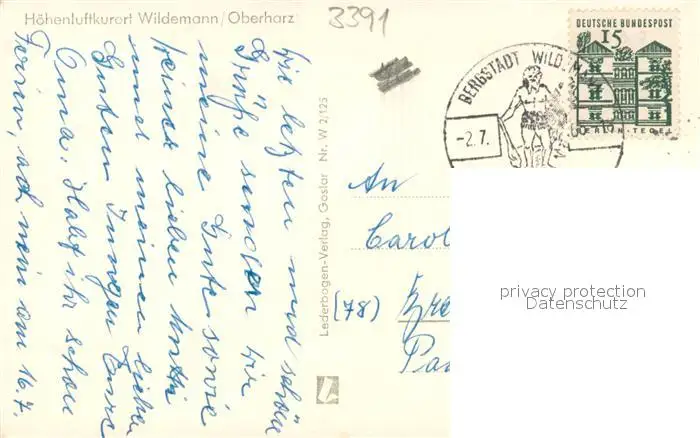 Höhenluftkurort Wildemann/Oberharz
3391
Die letzten und schöne
Grüße senden Dir
meine Gute sowie
Deiner lieben Mutti
und meinen lieben
Guten Jungen Eure
Oma. Habt ihr schon
Ferien, ach nein am 16.7.
Lederbogen-Verlag, Goslar Nr. W 2/125
DEUTSCHE BUNDESPOST
15
BERLIN-TEGEL
BERGSTADT WILD
-2.7.
An
Carol
(78)
privacy protection
Datenschutz